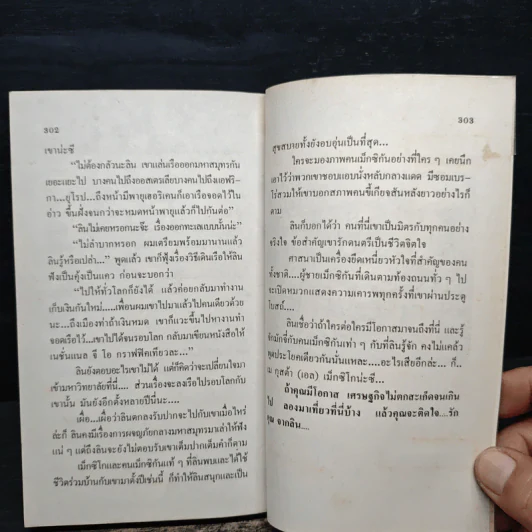 302
เขาน่ะซี
“ไม่ต้องกลัวนะลิน เขาแล่นเรือออกมหาสมุทรกัน
เยอะแยะไป บางคนไปถึงออสเตรเลียบางคนไปถึงแอฟริ-
กา...ยุโรป...ถึงหน้ามีพายุเฮอริเคนก็เอาเรือจอดไว้ใน
อ่าว ขึ้นฝั่งจนกว่าจะหมดหน้าพายุแล้วก็ไปกันต่อ”
“ลินไม่เคยหรอกนะจ๊ะ เรื่องออกทะเลแบบนั้นน่ะ”
“ไม่ลำบากหรอก ผมเตรียมพร้อมมานานแล้ว
ลินรู้หรือเปล่า...” พูดแล้ว เขาก็ฟุ้งเรื่องวิธีเดินเรือให้ลิน
ฟังเป็นคุ้งเป็นแคว ก่อนจะบอกว่า
“ไปให้ทั่วโลกก็ยังได้ แล้วค่อยกลับมาทำงาน
เก็บเงินกันใหม่.....เพื่อนผมเขาไปมาแล้วไปคนเดียวด้วย
นะ...ถึงเมืองท่าถ้าเงินหมด เขาก็แวะขึ้นไปหางานทำ
จอดเรือไว้...เขาไปได้รอบโลก กลับมาเขียนหนังสือให้
เนชั่นแนล จี โอ กราฟฟิคเทียวละ...”
ลินยังตอบอะไรเขาไม่ได้ แต่ก็คิดว่าจะเปลี่ยนใจมา
เข้ามหาวิทยาลัยที่นี่... ส่วนเรื่องจะลงเรือไปรอบโลกกับ
เขานั้น มันยังอีกตั้งหลายปีนี่นะ...
เผื่อ...เผื่อว่าลินตกลงรับปากจะไปกับเขาเมื่อไหร่
ล่ะก็ ลินคงมีเรื่องการผจญภัยกลางมหาสมุทรมาเล่าให้ฟัง
แน่ ๆ แต่ถึงลินจะยังไม่ตอบรับเขาเต็มปากเต็มคำก็ตาม
เม็กซิโกและคนเม็กซิกันแท้ ๆ ที่ลินพบและได้ใช้
ชีวิตร่วมบ้านกับเขามาตั้งปีเช่นนี้ ก็ทำให้ลินสนุกและเป็น
303
สุขสบายทั้งยังอบอุ่นเป็นที่สุด...
ใครจะมองภาพคนเม็กซิกันอย่างที่ใคร ๆ เคยนึก
เอาไว้ว่าพวกเขาชอบแอบนั่งหลับกลางแดด มีซอมเบร-
โร่สวมให้เขาบอกสภาพคนขี้เกียจสันหลังยาวอย่างไรก็
ตาม
ลินก็บอกได้ว่า คนที่นี่เขาเป็นมิตรกับทุกคนอย่าง
จริงใจ ข้อสำคัญเขารักดนตรีเป็นชีวิตจิตใจ
ศาสนาเป็นเครื่องยึดเหนี่ยวหัวใจที่สำคัญของคน
ทั้งชาติ....ผู้ชายเม็กซิกันที่เดินตามท้องถนนทั่ว ๆ ไป
จะเปิดหมวกแสดงความเคารพทุกครั้งที่เขาผ่านประตู
โบสถ์....
ลินเชื่อว่าถ้าใครต่อใครมีโอกาสมาจนถึงที่นี่ และรู้
จักมักจี่กับคนเม็กซิกันเท่า ๆ กับที่ลินรู้จัก คงไม่แคล้ว
พูดประโยคเดียวกันนั่นแหละ....อะไรเสียอีกล่ะ... ก็...
ม กุสต้า (เอล) เม็กซิโกน่ะซี...
ถ้าคุณมีโอกาส เศรษฐกิจไม่ตกสะเก็ดจนเกิน
ไป ลองมาเที่ยวที่นี่บ้าง แล้วคุณจะติดใจ....รัก
คุณ จากลิน....